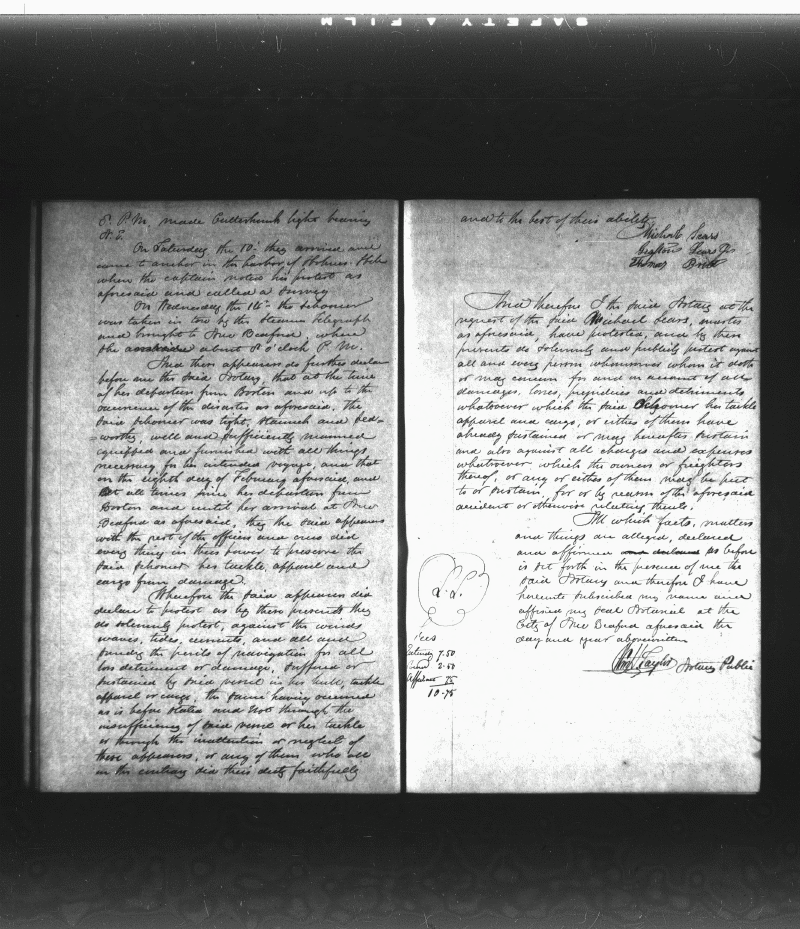 SAFETY A FILM
8. P.M. made Cutterhunk light bearing
N.E.
On Saturday the 10th they arrived and
came to anchor in the harbor of Holmes Hole
where the captain notes his protest as
aforesaid and called a survey
On Wednesday the 14th the Schooner
was taken in tow by the steamer Telegraph
and brought to New Bedford, where
she about 8 o'clock P.M.
And these appearers do further declare
before me the said Notary, that at the time
of her departure from Boston and up to the
occurrence of the disaster as aforesaid, the
said Schooner was tight, staunch and sea-
worthy, well and sufficiently manned
equipped and furnished with all things
necessary for her intended voyage, and that
on the eighth day of February aforesaid, and
at all times since her departure from
Boston and until her arrival at New
Bedford as aforesaid, they the said appearers
with the rest of the officers and crew did
every thing in their power to preserve the
said Schooner her tackle apparel and
cargo from damage.
Wherefore the said appearers did
declare to protest as by these presents they
do solemnly protest, against the winds
waves, tides, currents, and all and
sundry the perils of navigation for all
loss detriment or damage, suffered or
sustained by said vessel in her hull, tackle
apparel or cargo, the same having occurred
as is before stated and not through the
insufficiency of said vessel or her tackle
or through the inattention or neglect of
these appearers, or any of them who all
on the contrary did their duty faithfully
and to the best of their ability
Michael Sears
Sears Jr
Thomas
And therefore I the said Notary at the
request of the said Michael Sears, master
as aforesaid, have protested, and by these
presents do solemnly and publicly protest against
all and every person whomsoever whom it doth
or may concern for and on account of all
damages, losses, prejudices and detriments
whatsoever which the said Schooner her tackle
apparel and cargo, or either of them have
already sustained or may hereafter sustain
and also against all charges and expenses
whatsoever which the owners or freighters
thereof, or any or either of them may be put
to or sustain, for or by reason of the aforesaid
accident or otherwise relating thereto.
All which facts, matters
and things are alleged, declared
and affirmed and declared as before
is set forth in the presence of me the
said Notary and therefore I have
hereunto subscribed my name and
affixed my seal Notarial at the
City of New Bedford aforesaid the
day and year abovewritten
L.S.
Taylor Notary Public
Fees
Extending 7.50
2.50
75
10.75